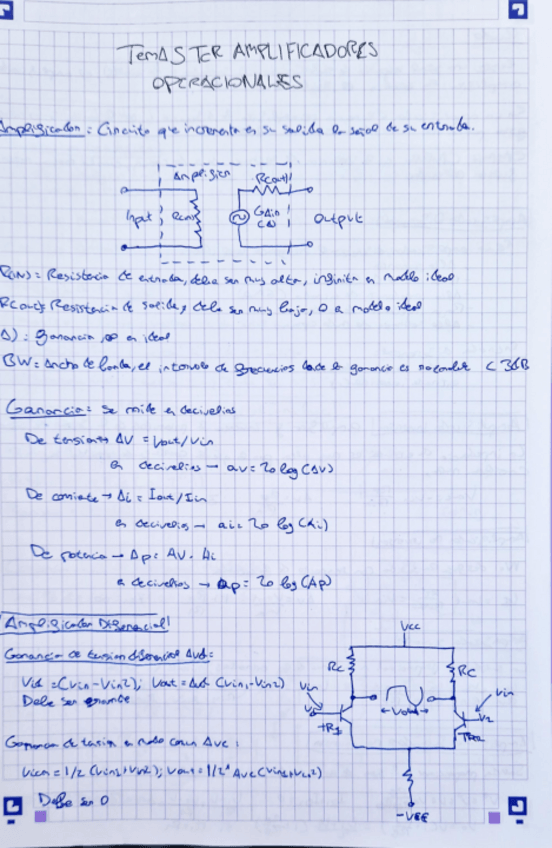 TEMA 5 TER AMPLIFICADORES
OPERACIONALES
Amplificador: Circuito que incrementa en su salida la señal de su entrada.
Amplifier
Input
R(in)
R(out)
Gain
(A)
Output
R(IN): Resistencia de entrada, debe ser muy alta, infinita en modelo ideal
R(out): Resistencia de salida, debe ser muy baja, 0 en modelo ideal
A): ganancia, ∞ en ideal
BW: Ancho de banda, el intervalo de frecuencias donde la ganancia es < 3dB
Ganancia: Se mide en decivelios
De tension → AV = Vout/Vin
en decivelios → av = 20 log (AV)
De corriente → Ai = Iout/Iin
en decivelios → ai = 20 log (Ai)
De potencia → Ap = AV . Ai
en decivelios → ap = 20 log (Ap)
Amplificador Diferencial
Ganancia de tension diferencial Avd:
Vid = (Vin1 - Vin2); Vout = Avd (Vin1 - Vin2)
Debe ser grande
Ganancia de tension en modo comun Avc:
Vicm = 1/2 (Vin1+Vin2); Vout = 1/2 * Avc (Vin1+Vin2)
Debe ser 0
Vcc
Rc
RC
Vin
Vout
Vin
V2
TR1
TR2
-VEE